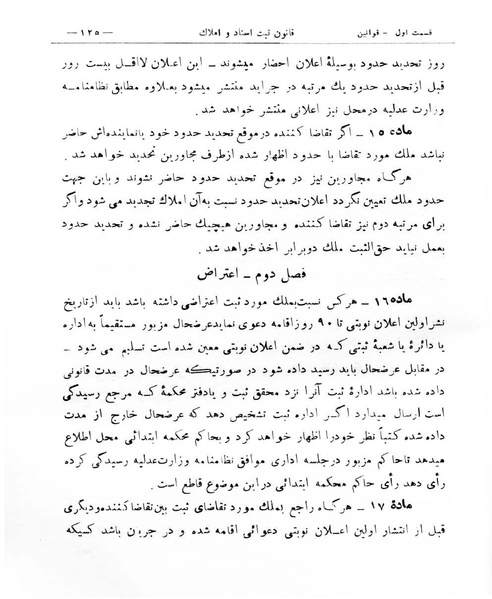 قسمت اول - قوانین قانون ثبت اسناد و املاك — ۱۲۵ —
روز تحدید حدود بوسیلهٔ اعلان احضار میشوند - این اعلان لااقل بیست روز
قبل از تحدید حدود یك مرتبه در جراید منتشر میشود بعلاوه مطابق نظامنامه
وزارت عدلیه درمحل نیز اعلانی منتشر خواهد شد.
ماده ۱۵ - اگر تقاضا کننده در موقع تحدید حدود خود یا نماینده‌اش حاضر
نباشد ملك مورد تقاضا با حدود اظهار شده ازطرف مجاورین تحدید خواهد شد.
هرگاه مجاورین نیز در موقع تحدید حدود حاضر نشوند و باین جهت
حدود ملك تعیین نگردد اعلان تحدید حدود نسبت به آن املاك تجدید می شود و اگر
برای مرتبه دوم نیز تقاضا کننده و مجاورین هیچیك حاضر نشده و تحدید حدود
بعمل نیاید حق‌الثبت ملك دوبرابر اخذ خواهد شد.
فصل دوم - اعتراض
ماده ۱۶ - هرکس نسبت بملك مورد ثبت اعتراضی داشته باشد باید از تاریخ
نشر اولین اعلان نوبتی تا ۹۰ روز اقامه دعوی نماید عرضحال مزبور مستقیماً به اداره
یا دائرهٔ یا شعبهٔ ثبتی که در ضمن اعلان نوبتی معین شده است تسلیم می شود -
در مقابل عرضحال باید رسید داده شود در صورتیکه عرضحال در مدت قانونی
داده شده باشد ادارهٔ ثبت آنرا نزد محقق ثبت و یا دفتر محکمهٔ که مرجع رسیدگی
است ارسال میدارد اگر اداره ثبت تشخیص دهد که عرضحال خارج از مدت
داده شده کتباً نظر خودرا اظهار خواهد کرد و بحاکم محکمه ابتدائی محل اطلاع
میدهد تا حاکم مزبور در جلسه اداری موافق نظامنامه وزارت عدلیه رسیدگی کرده
رأی دهد رأی حاکم محکمه ابتدائی در این موضوع قاطع است.
ماده ۱۷ - هرگاه راجع بملك مورد تقاضای ثبت بین تقاضا کننده و دیگری
قبل از انتشار اولین اعلان نوبتی دعوائی اقامه شده و در جریان باشد کسیکه